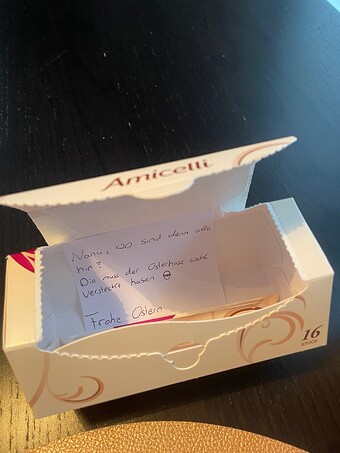 Amicelli
Nanu, wo sind denn alle
hin?
Die muss der Osterhase wohl
versteckt haben
Frohe Ostern
16
STÜCK